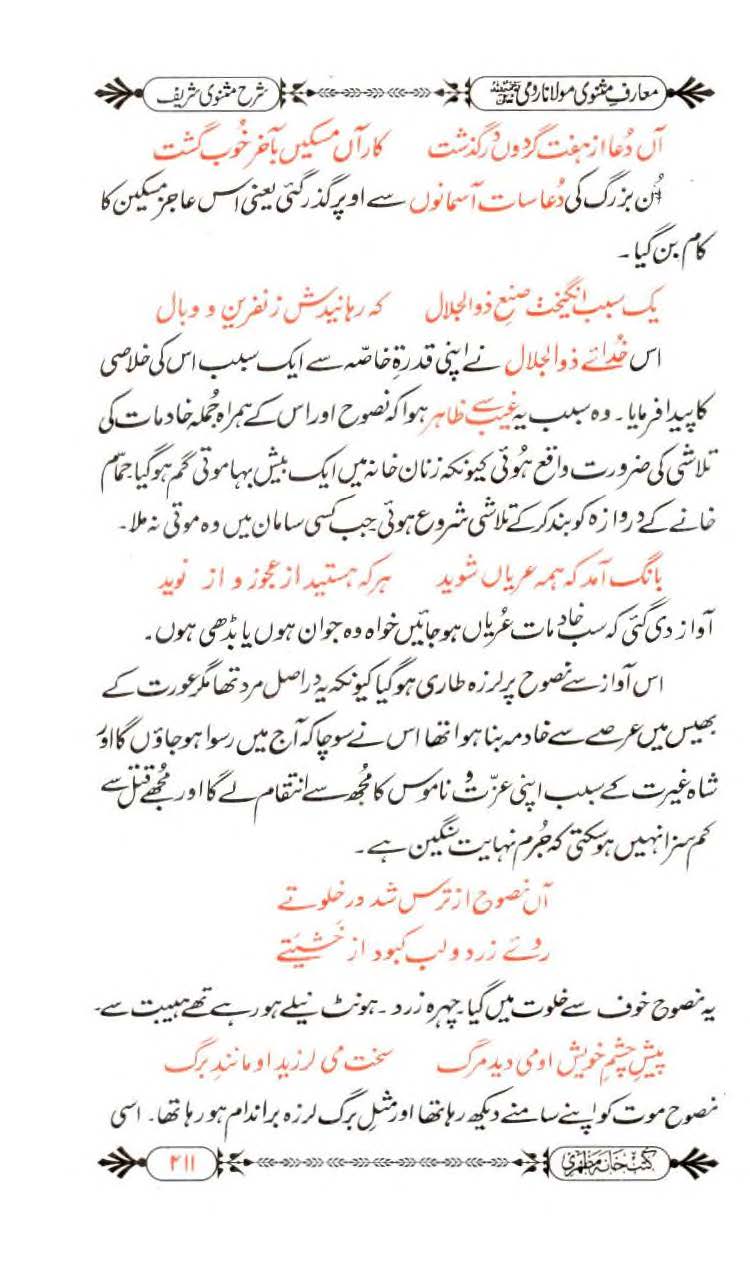 معارفِ مثنوی مولانا رومیؒ شرح مثنوی شریف
آں دُعا از ہفت گردوں درگذشت کار آں مسکیں بآخر خُوب گشت
اُن بزرگ کی دُعا سات آسمانوں سے اوپر گذر گئی یعنی اس عاجز مسکین کا
کام بن گیا۔
یک سبب انگیخت صنعِ ذوالجلال کہ رہانیدش ز نفرین و وبال
اس خُدائے ذوالجلال نے اپنی قدرۃِ خاصّہ سے ایک سبب اس کی خلاصی
کا پیدا فرمایا۔ وہ سبب یہ غیب سے ظاہر ہوا کہ نصوح اور اس کے ہمراہ جُملہ خادمات کی
تلاشی کی ضرورت واقع ہُوئی کیونکہ زنان خانہ میں ایک بیش بہا موتی گم ہو گیا۔ حمّام
خانے کے دروازہ کو بند کر کے تلاشی شروع ہوئی جب کسی سامان میں وہ موتی نہ ملا۔
بانگ آمد کہ ہمہ عریاں شوید ہر کہ ہستید از عجوز و از نوید
آواز دی گئی کہ سب خادمات عُریاں ہو جائیں خواہ وہ جوان ہوں یا بڈھی ہوں۔
اس آواز سے نصوح پر لرزہ طاری ہو گیا کیونکہ یہ دراصل مرد تھا مگر عورت کے
بھیس میں عرصے سے خادمہ بنا ہوا تھا اس نے سوچا کہ آج میں رسوا ہو جاؤں گا اور
شاہ غیرت کے سبب اپنی عزّت و ناموس کا مُجھ سے انتقام لے گا اور مُجھے قتل سے
کم سزا نہیں ہو سکتی کہ جُرم نہایت سنگین ہے۔
آں نصوح از ترس شد در خلوتے
روئے زرد و لب کبود از خَشیتے
یہ نصوح خوف سے خلوت میں گیا۔ چہرہ زرد۔ ہونٹ نیلے ہو رہے تھے ہیبت سے۔
پیشِ چشمِ خویش او می دید مرگ سخت می لرزید او مانندِ برگ
نصوح موت کو اپنے سامنے دیکھ رہا تھا اور مثلِ برگ لرزہ براندام ہو رہا تھا۔ اسی
کتب خانہ مظہری ۲۱۱